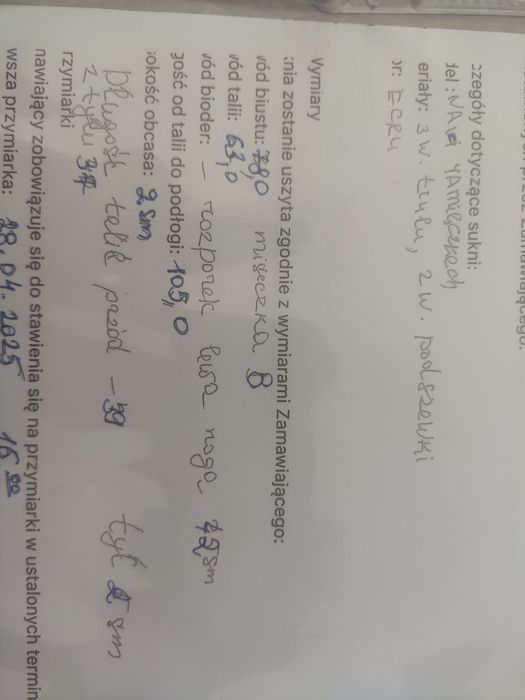 przez Zamawiającego.
czegóły dotyczące sukni:
del: NA RAMIĘCZKACH
eriały: 3 w. tiulu, 2 w. podszewki
or: ECRU
Wymiary
nia zostanie uszyta zgodnie z wymiarami Zamawiającego:
wód biustu: 78,0 miseczka B
wód talii: 63,0
wód bioder: – rozporek lewa noga 42 sm
gość od talii do podłogi: 105,0
okość obcasa: 2 sm
Długość talii przód – 39 tył sm
z tyłu 37
rzymiarki
nawiający zobowiązuje się do stawienia się na przymiarki w ustalonych termin
wsza przymiarka: 28.04.2025 16 00